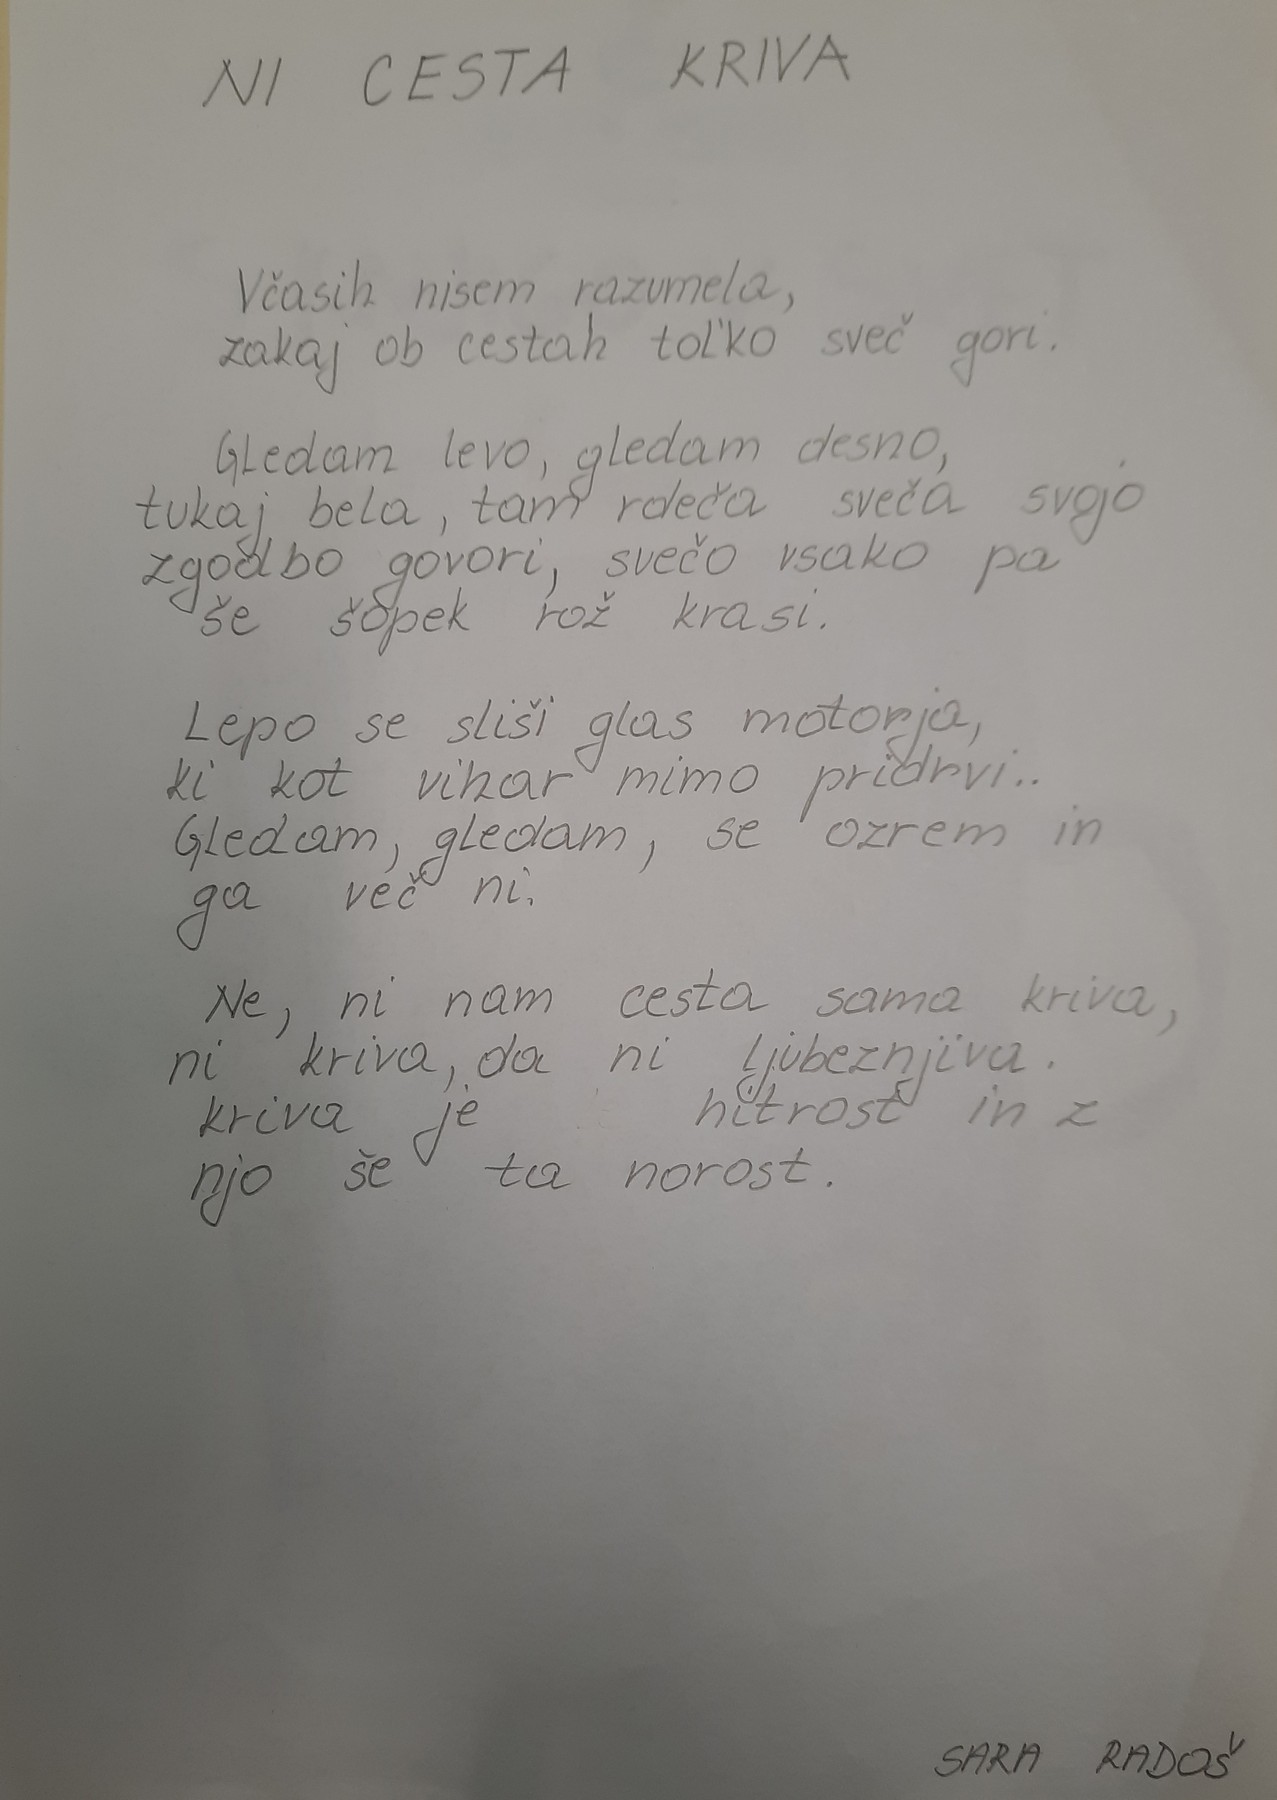 NI CESTA KRIVA
Včasih nisem razumela,
zakaj ob cestah tol'ko sveč gori.
Gledam levo, gledam desno,
tukaj bela, tam rdeča sveča svojo
zgodbo govori, svečo vsako pa
še šopek rož krasi.
Lepo se sliši glas motorja,
ki kot vihar mimo pridrvi..
Gledam, gledam, se ozrem in
ga več ni.
Ne, ni nam cesta sama kriva,
ni kriva, da ni ljubeznjiva.
kriva je hitrost in z
njo še ta norost.
SARA RADOŠ